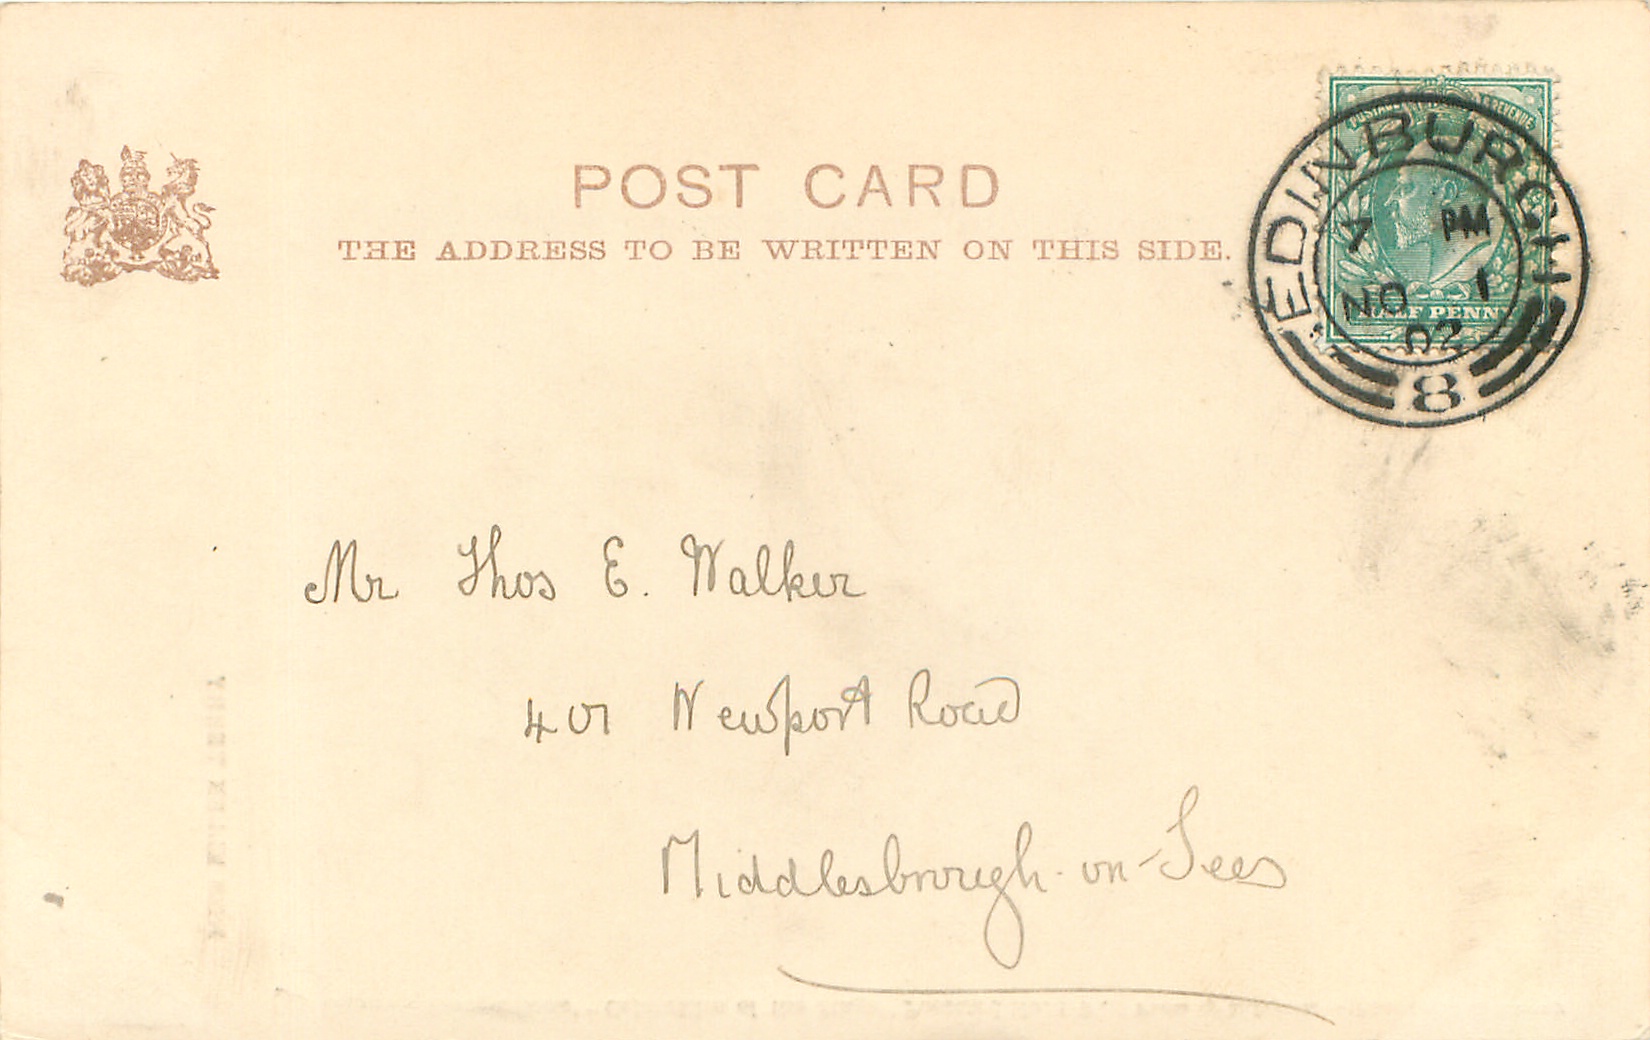 POST CARD
THE ADDRESS TO BE WRITTEN ON THIS SIDE.
POSTAGE REVENUE
HALF PENNY
EDINBURGH
7 PM
NO 1
02
8
Mr Thos E. Walker
401 Newport Road
Middlesbrough-on-Tees